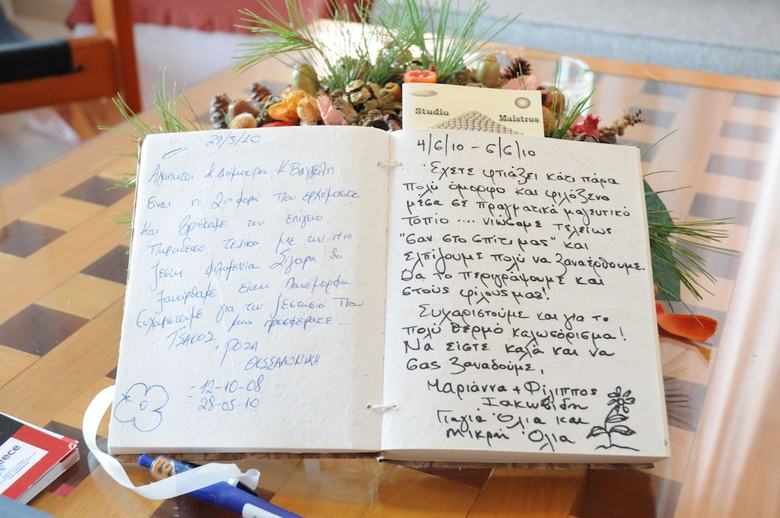 Studio
Maistros
Αγαπητοί κ Δήμητρα κ Βαγγέλη
Είναι η 2η φορά που ερχόμαστε
και βρήκαμε τον επίγειο
Παράδεισο τελικά με την πιο
ζεστή φιλοξενία Σίγουρα θα
ξαναρθουμε είναι πανέμορφα..
Ευχαριστούμε για την ζεστασιά που
μας προσφέρατε...
ΤΣΑΚΟΣ
+ ΡΟΖΑ
ΘΕΣΣΑΛΟΝΙΚΗ
= 12-10-08
28-05-10
4/6/10 - 6/6/10
Έχετε φτιάξει κάτι πάρα
πολύ όμορφο και φιλόξενο
μέσα σε πραγματικά μαγευτικό
τοπίο .... νιώσαμε τελείως
"σαν στο σπίτι μας" και
ελπίζουμε πολύ να ξαναέρθουμε.
Θα το περιγράψουμε και
στους φίλους μας!
Ευχαριστούμε και για το
πολύ θερμό καλωσόρισμα!
Να είστε καλά και να
σας ξαναδούμε,
Μαριάννα + Φίλιππος
Ιακωβίδη
Γιαγιά Όλια και
μικρή Όλια
eece